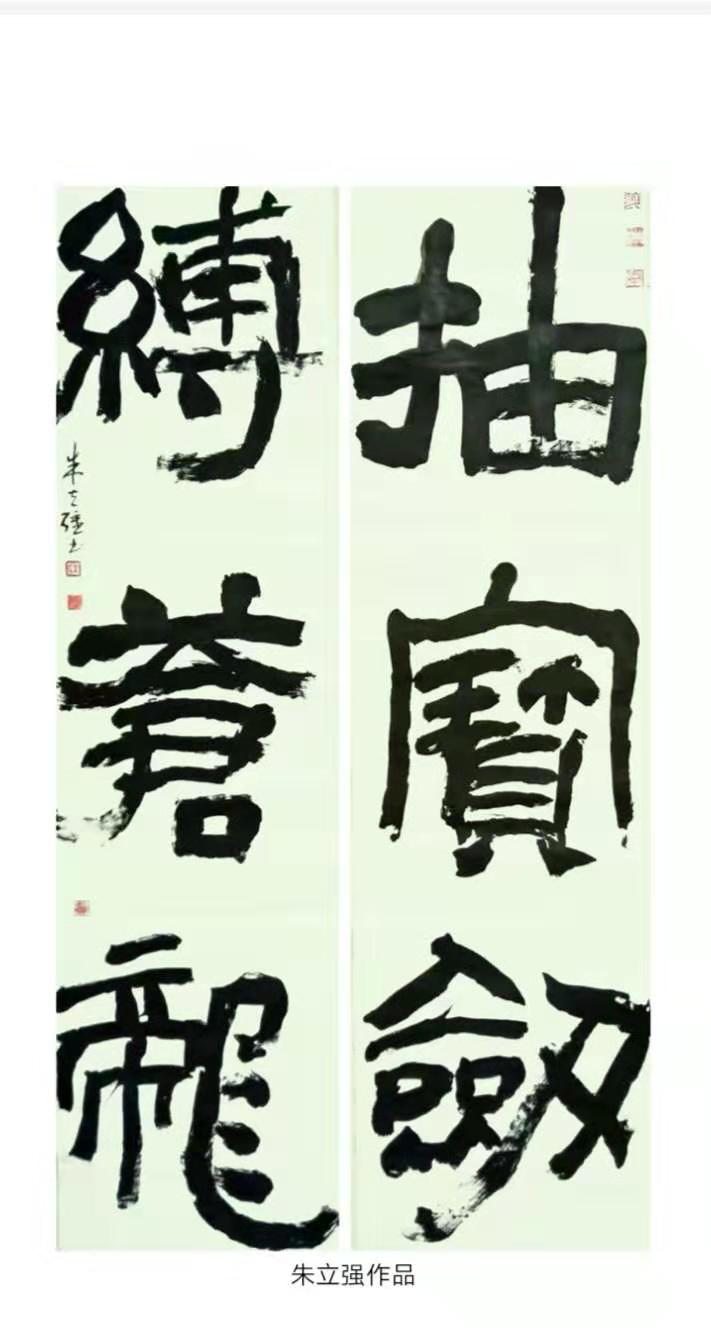 抽寶劔
縛蒼龍
朱立强书
朱立强作品